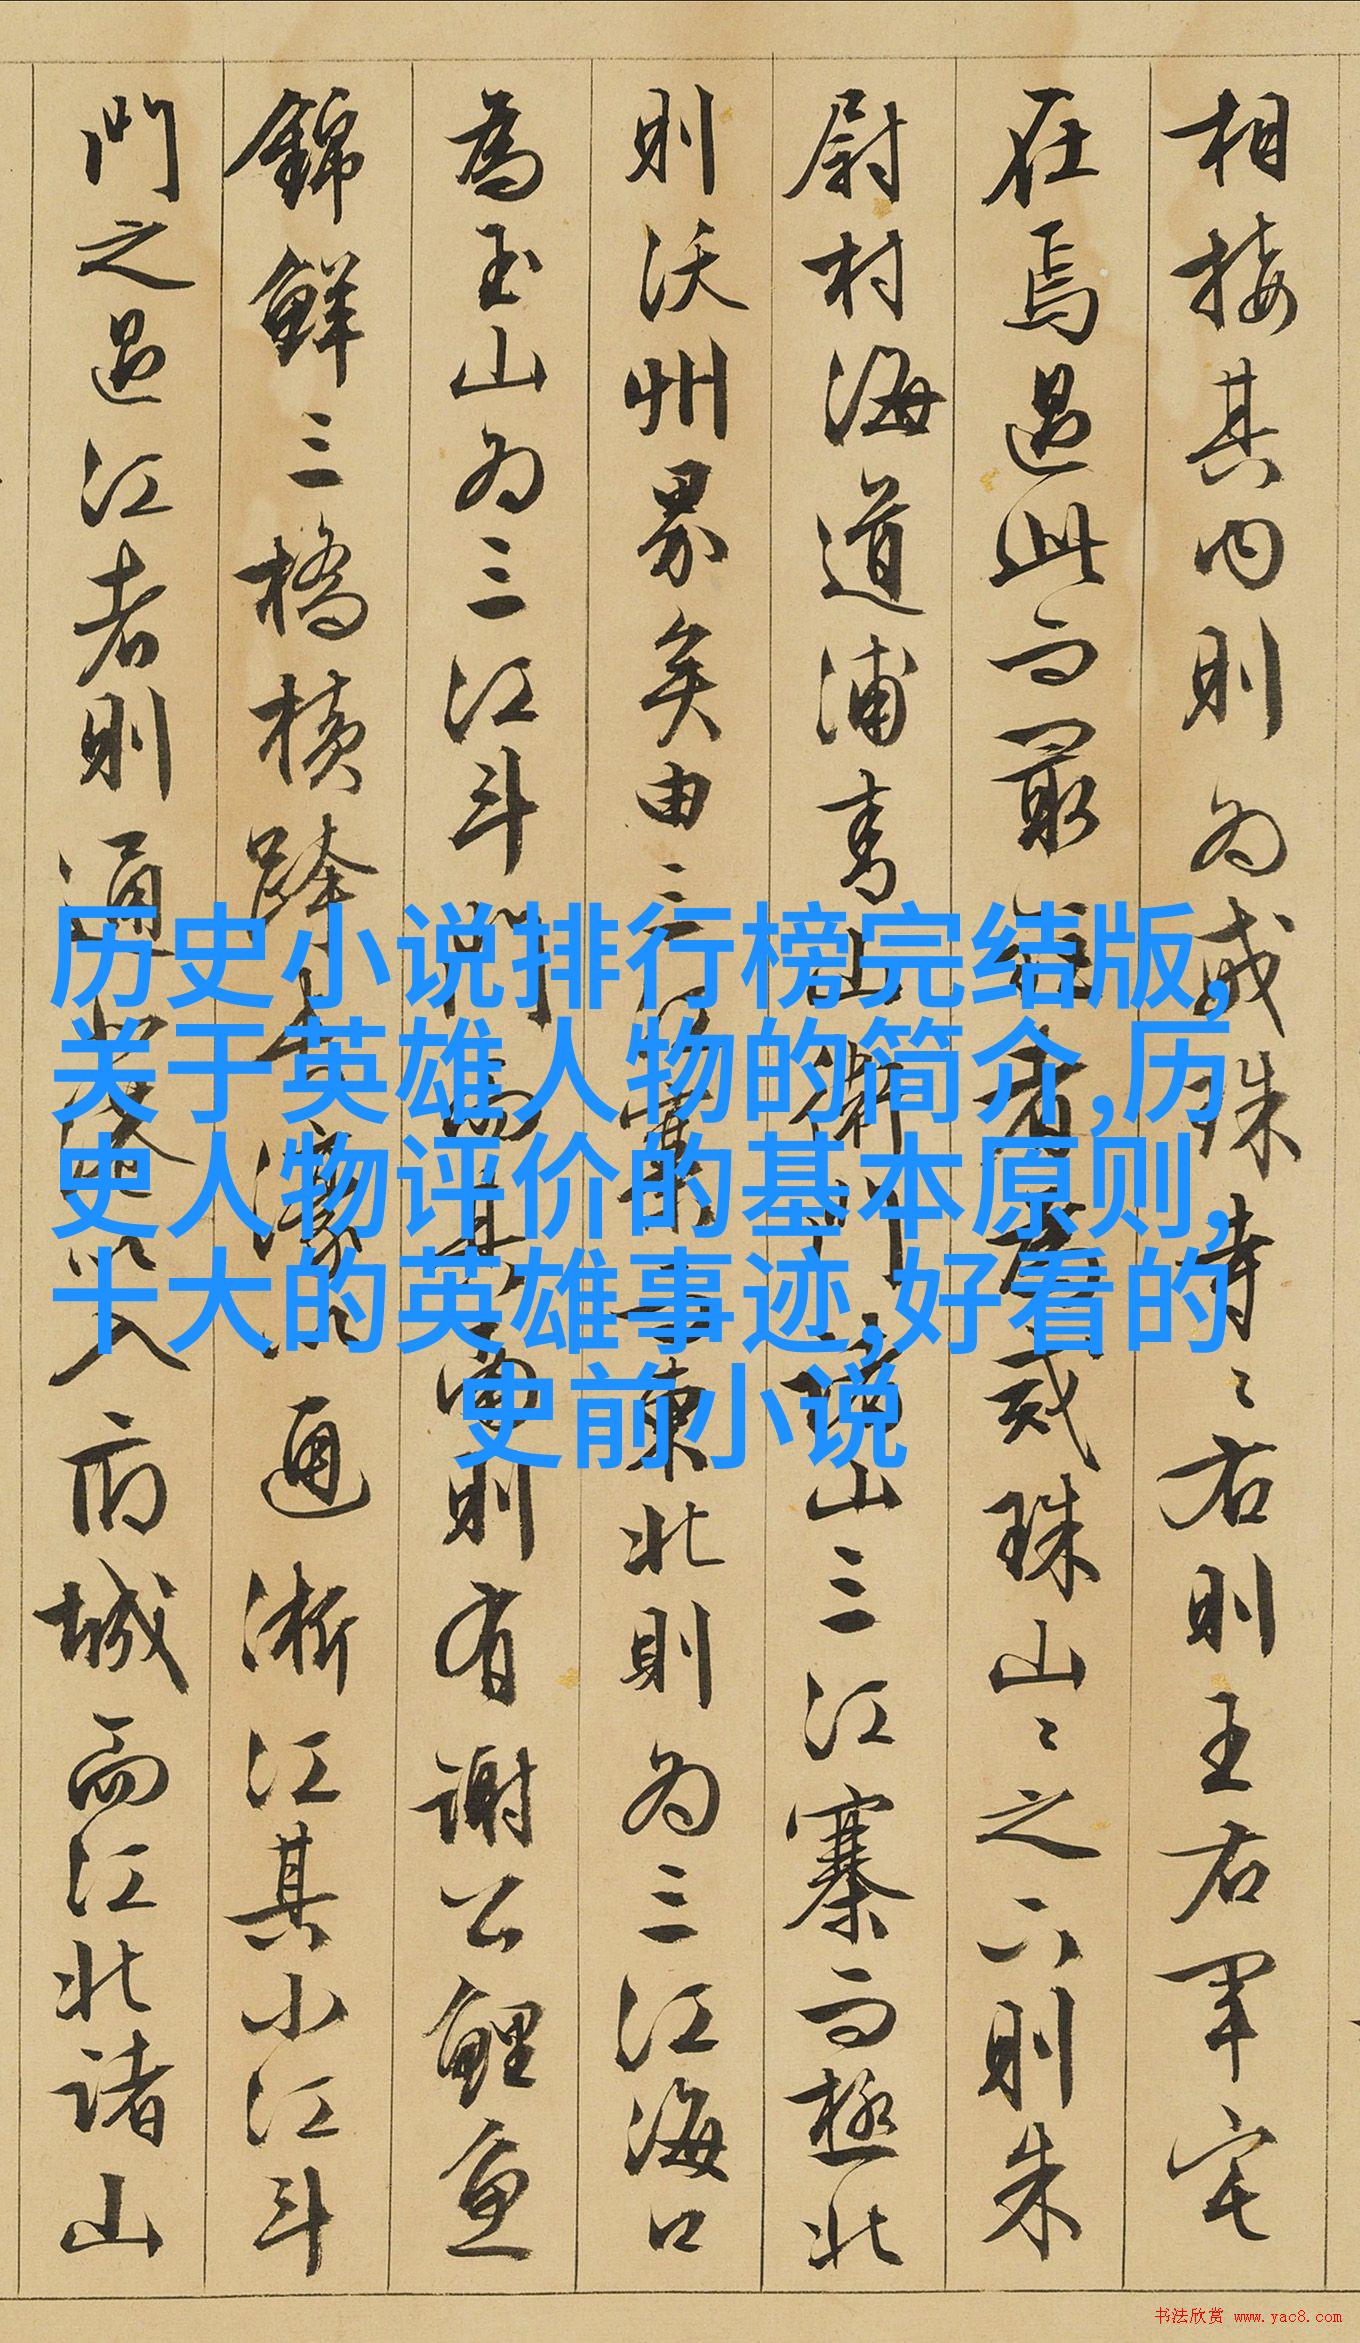 相接其内則为戒珠寺〻右則王右軍宅
在焉過此而最者為戒珠山〻之則朱
尉村海道浦山衛山三江寨而極北
則沃州界矣由三江東北則为三江海口
為玉山为三江斗門而其南則有謝公鯉魚
錦鮮三橋橫跨濠通浙江其小江斗
門之過江者則通以入府城而江北諸山
历史小说排行榜完结版,
关于英雄人物的简介,历
史人物评价的基本原则,
十大的英雄事迹,好看的
史前小说
书法欣赏 www.yac8.com